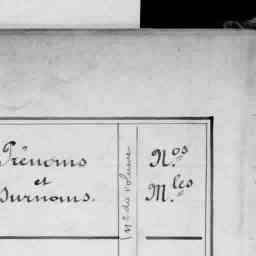 Prénoms
et
Surnoms.
N.º du volume
N.os
M.les